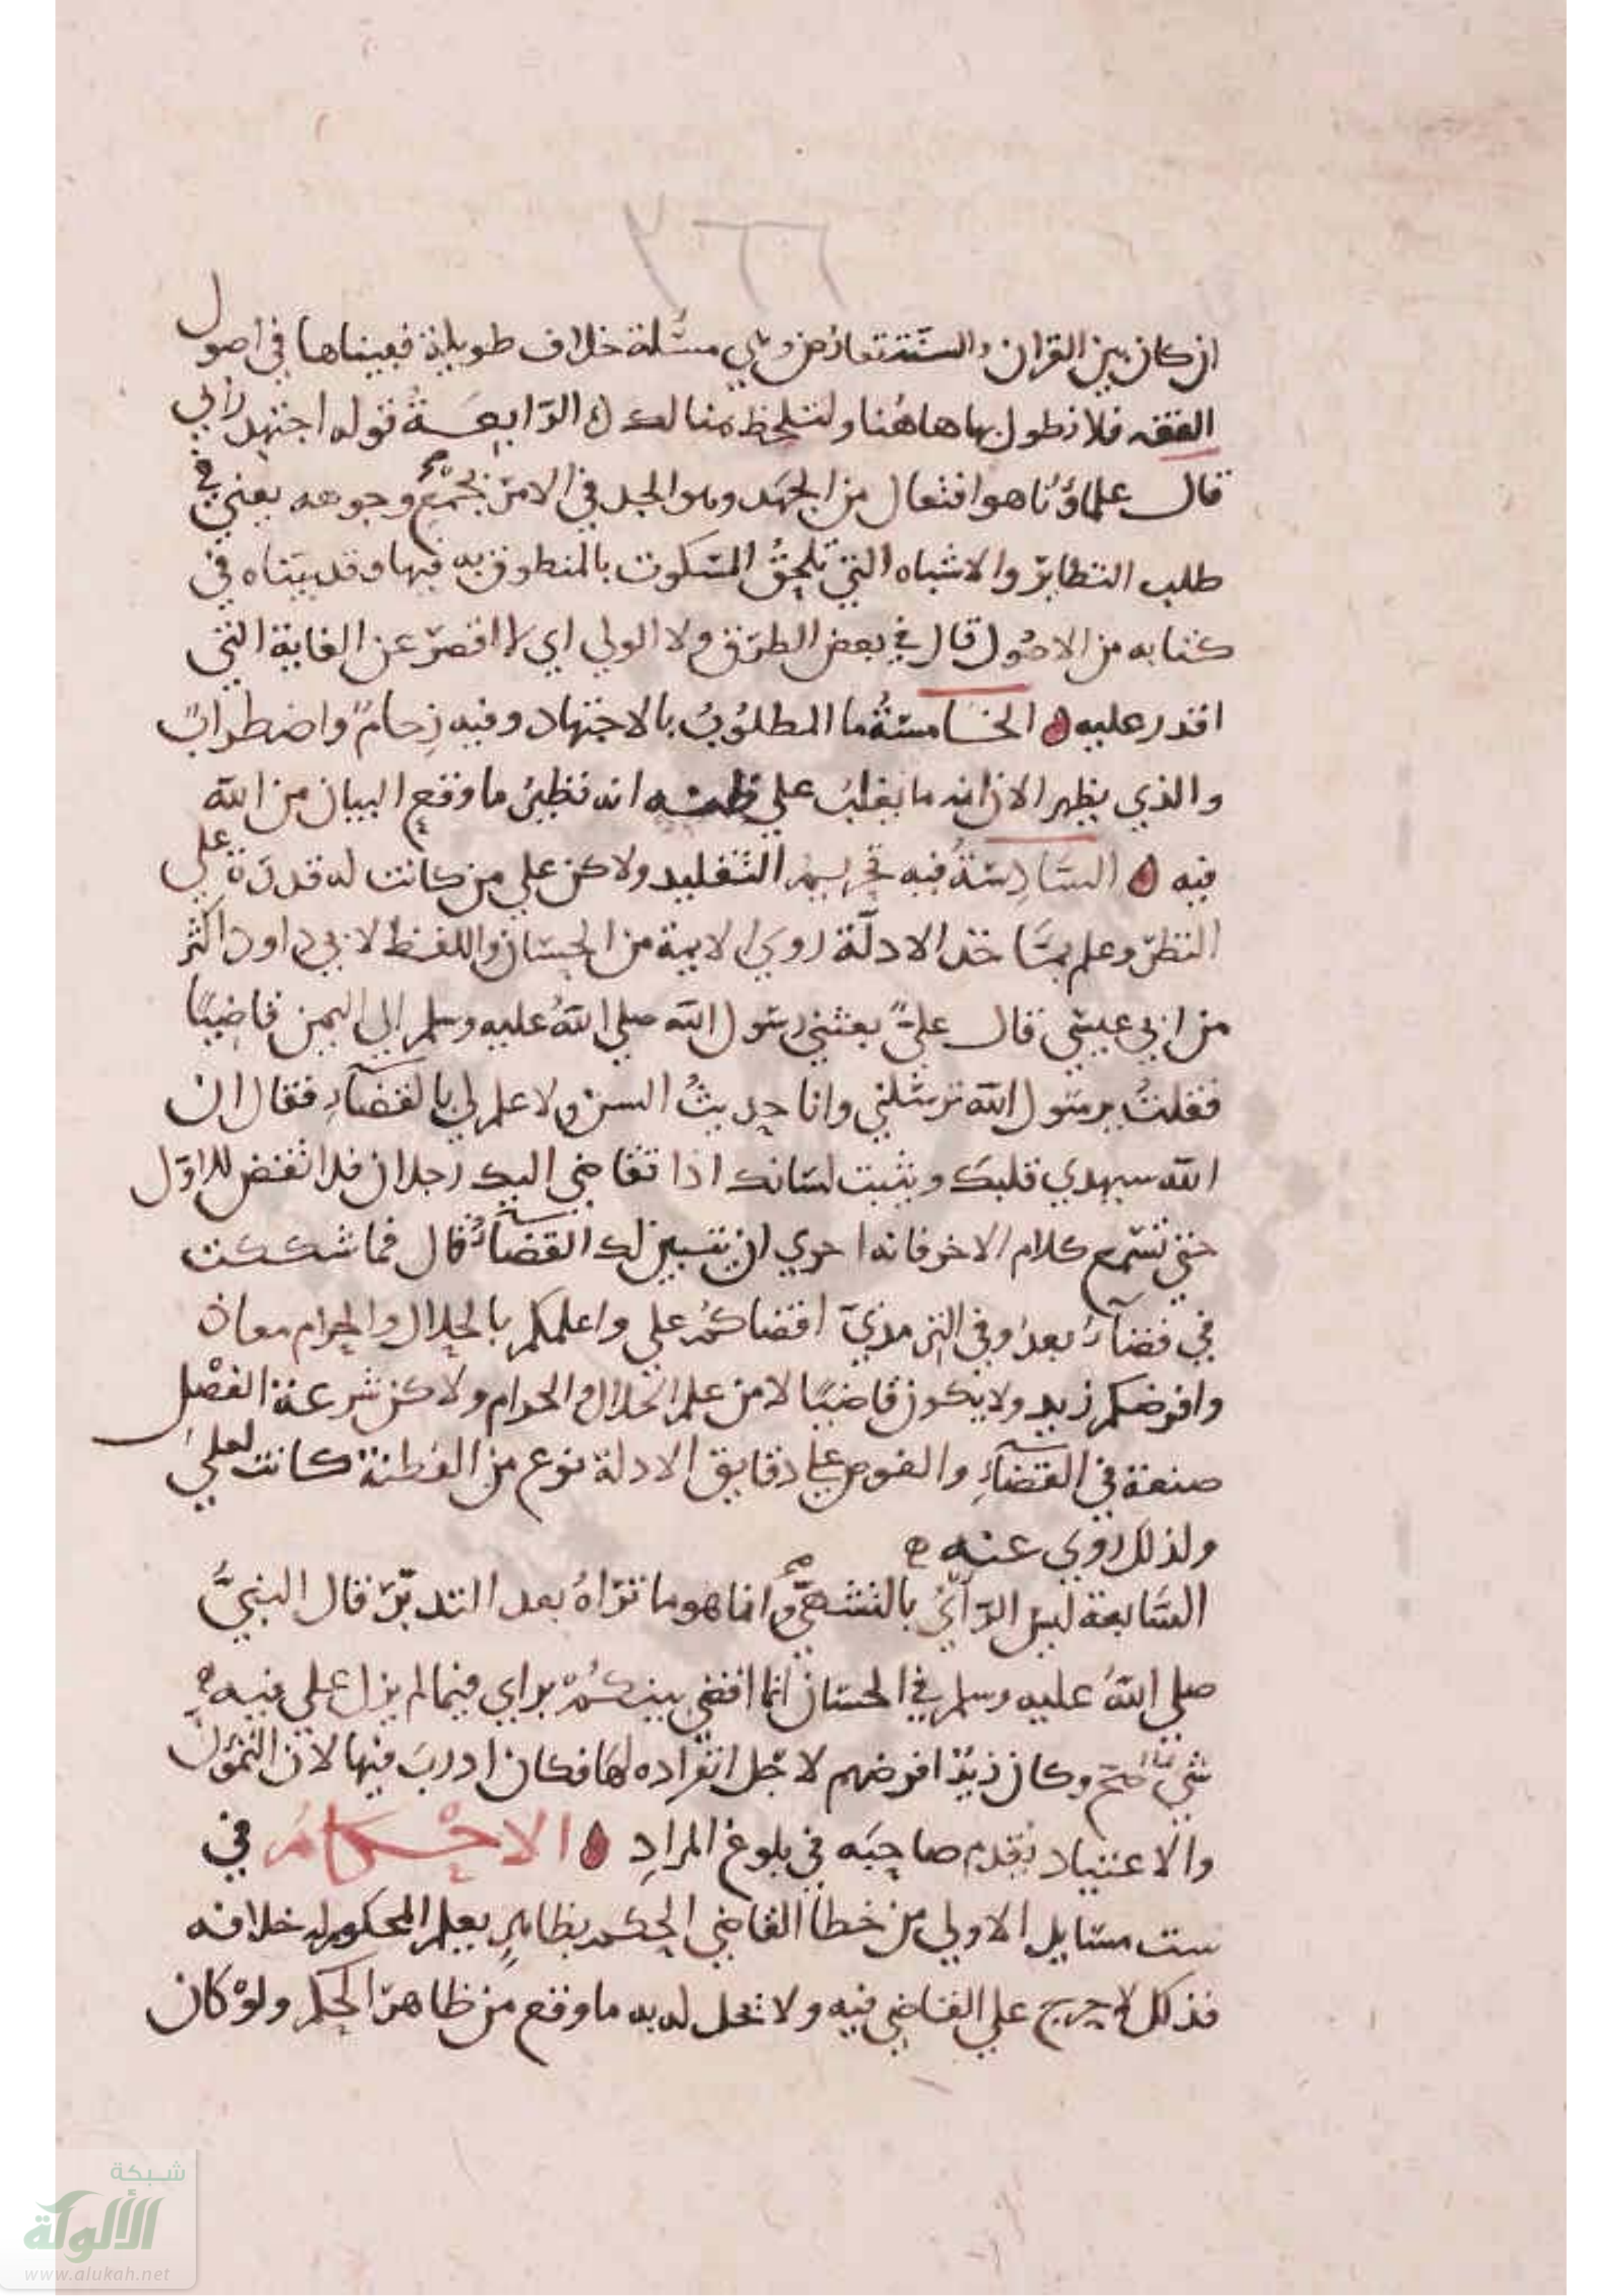 ٢٦٦
ان كان بين القران والسنة تعارض وهي مسئلة خلاف طويلة فبيناها في اصول
الفقه فلا نطول بها هاهنا ولتلحظ هنالك الرابعة قوله اجتهد رأي
قال علماؤنا هو افتعال من الجهد وهو الجد في الامر بجميع وجوهه يعني في
طلب النظاير والاشباه التي تلحق المسكوت بالمنطوق به فيها وقد بيناه في
كتابه من الاصول قال في بعض الطرق ولا الو اي لا اقصر عن الغاية التي
اقدر عليه الخامسة ما المطلوب بالاجتهاد وفيه زحام واضطراب
والذي يظهر الان انه ما يغلب على ظنه انه نظير ما وقع البيان من الله
فيه السادسة فيه تحريم التقليد ولاكن علي من كانت له قدرة علي
النظر وعلم بمآخذ الادلة روي الايمة من الحسان واللفظ لابي داود اكثر
من ابي عيسي قال علي بعثني رسول الله صلي الله عليه وسلم الي اليمن قاضيا
فقلت يرسول الله ترسلني وانا حديث السن ولا علم لي بالقضاء فقال ان
الله سيهدي قلبك ويثبت لسانك اذا تقاضي اليك رجلان فلا تقض للاول
حتي تسمع كلام الاخر فانه احري ان يتبين لك القضاء قال فما شككت
في قضاء بعد وفي الترمذي اقضاكم علي واعلمكم بالحلال والحرام معاذ
وافرضكم زيد ولا يكون قاضيا لا من علم الحلال والحرام ولاكن شرعة الفصل
صنعة في القضاء والغوص علي دقايق الادلة نوع من الفطنة كانت لعلي
ولذلك روي عنه
السابعة ليس الرأي بالتشهي وانما هو ما تراه بعد التدبر قال النبي
صلي الله عليه وسلم في الحسان انما اقضي بينكم براي فيما لم ينزل علي فيه
شي صح وكان زيد افرضهم لاجل انفراده لها فكان ادرب فيها لان التمرن
والاعتياد يقدم صاحبه في بلوغ المراد الاحكام في
ست مسايل الاولي من خطأ القاضي الحكم بظاهر يعلم المحكوم له خلافه
فذلك لا حرج علي القاضي فيه ولا تحل له به ما وقع من ظاهر الحكم ولو كان
شبكة
الألوكة
www.alukah.net